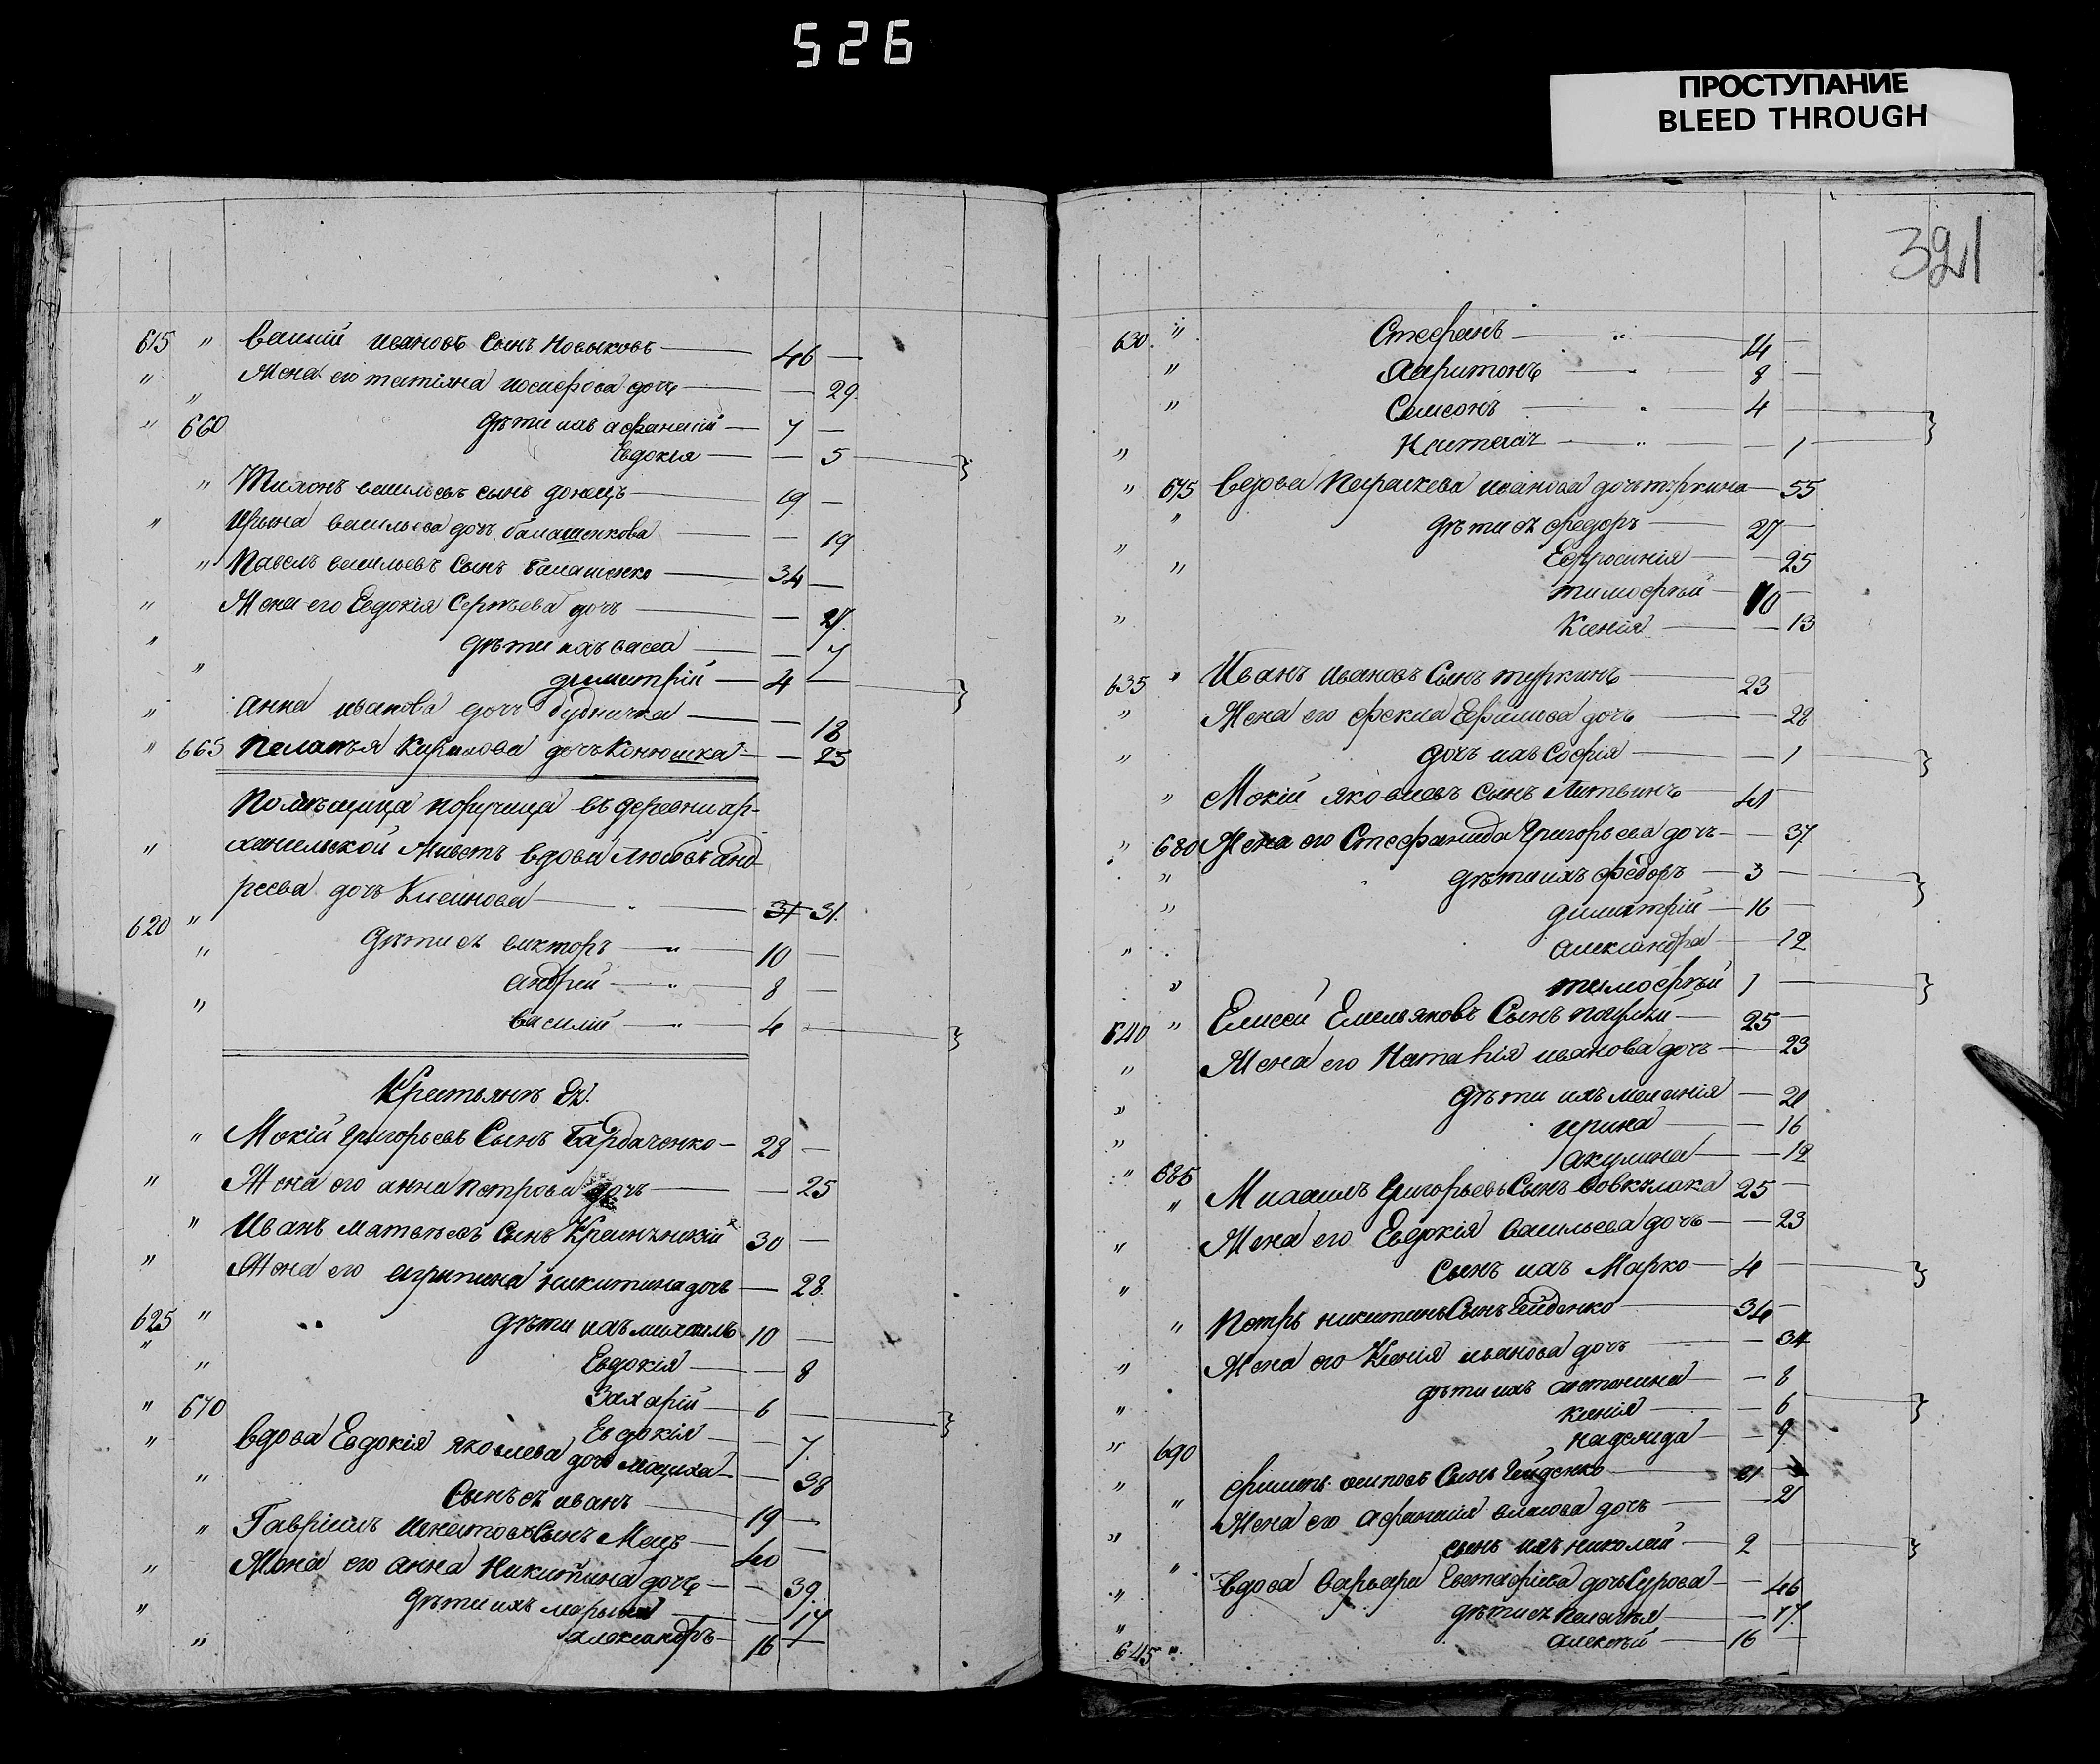 526
ПРОСТУПАНИЕ
BLEED THROUGH
615 " Василій Ивановъ Сынъ Новыковъ — 46 —
" " Жена его татіяна иосифова дочь — — 29.
" 660 дѣти ихъ афанасій — 7 —
Евдокія — — 5 —
" Тихонъ васильевъ сынъ донецъ — 19 —
" Ирина васильева дочь балашенкова — — 19
" Павелъ васильевъ Сынъ балашенко — 34 —
" Жена его Евдокія Сергѣева дочь — — 27.
" дѣти ихъ васса — — 7
" димитрій — 4 —
" анна иванова дочь будничка — — 18
" 665 Пелагѣя Кирилова дочь Конюшка — — 23
Помѣщица поручица въ деревни ар-
" хангельской Живетъ вдова Любовь анд-
реева дочь — 31 31.
620 " дѣти ея викторъ — " — 10 —
" андрей — " — 8 —
" василій — " — 4 —
Крестьянъ Ея.
" Мокій Григорьевъ Сынъ Бардаченко — 28 —
" Жена его анна петрова дочь — — 25
" Иванъ матвѣевъ Сынъ 30 —
" Жена его агрипина никитина дочь — — 28.
625 " дѣти ихъ михаилъ 10 —
" " Евдокія — — 8
" 670 Захарій — 6 —
" Евдокія — — 7.
вдова Евдокія яковлева дочь — — 38
" Сынъ ея иванъ — 19 —
" Гавріилъ игнатовъ Сынъ — 40 —
" Жена его анна Никитина дочь — — 39.
" дѣти ихъ марья — — 17
" александръ — 16 —
321
630 " Стефанъ — " — 14 —
" Харитонъ — " — 8 —
" Самсонъ — " — 4 —
" Наталія — " — — 1 —
" 675 Вдова Параскева иванова дочь туркина — 55
" дѣти ея федоръ — 27 —
" Ефросинія — — 25
" тимофѣй — 10 —
" Ксенія — — 13
635 " Иванъ ивановъ Сынъ туркинъ — 23 —
" Жена его фекла Ефимова дочь — — 28
" дочь ихъ Софія — — 1 —
" Мокій яковлевъ сынъ Литвинъ — 41 —
" 680 Жена его Стефанида Григорьева дочь — — 37.
" дѣти ихъ федоръ — 3 —
" димитрій — 16 —
" александра — — 12
" тимофѣй 1 —
640 " Елисей Емельяновъ Сынъ — 25 —
" Жена его Наталія иванова дочь — — 23
" дѣти ихъ меланія — — 21
" ирина — — 16
" акулина — — 12
" 685
" Михаилъ Григорьевъ Сынъ Вовкулака 25 —
" Жена его Евдокія васильева дочь — — 23
" Сынъ ихъ Марко — 4 —
" Петръ никитинъ Сынъ Гейденко — 34 —
" Жена его Ксенія иванова дочь — — 34
" дѣти ихъ антонина — — 8
" ксенія — — 6 —
" 690 надежда — — 9
" филипъ осиповъ Сынъ Гейденко — 21 —
" Жена его афанасія власова дочь — — 21
" сынъ ихъ николай — 2 —
" Вдова варвара Евстафіева дочь Сурова — — 46
" дѣти ея Пелагѣя — — 17.
645 " алексѣй — 16 —